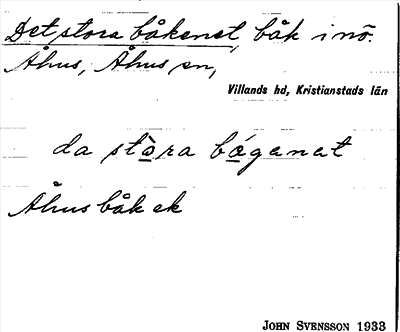 Det stora båkenet, båk i nö.
Åhus, Åhus sn,
Villands hd, Kristianstads län
da stòra bóganat
Åhus båk ek
JOHN SVENSSON 1933